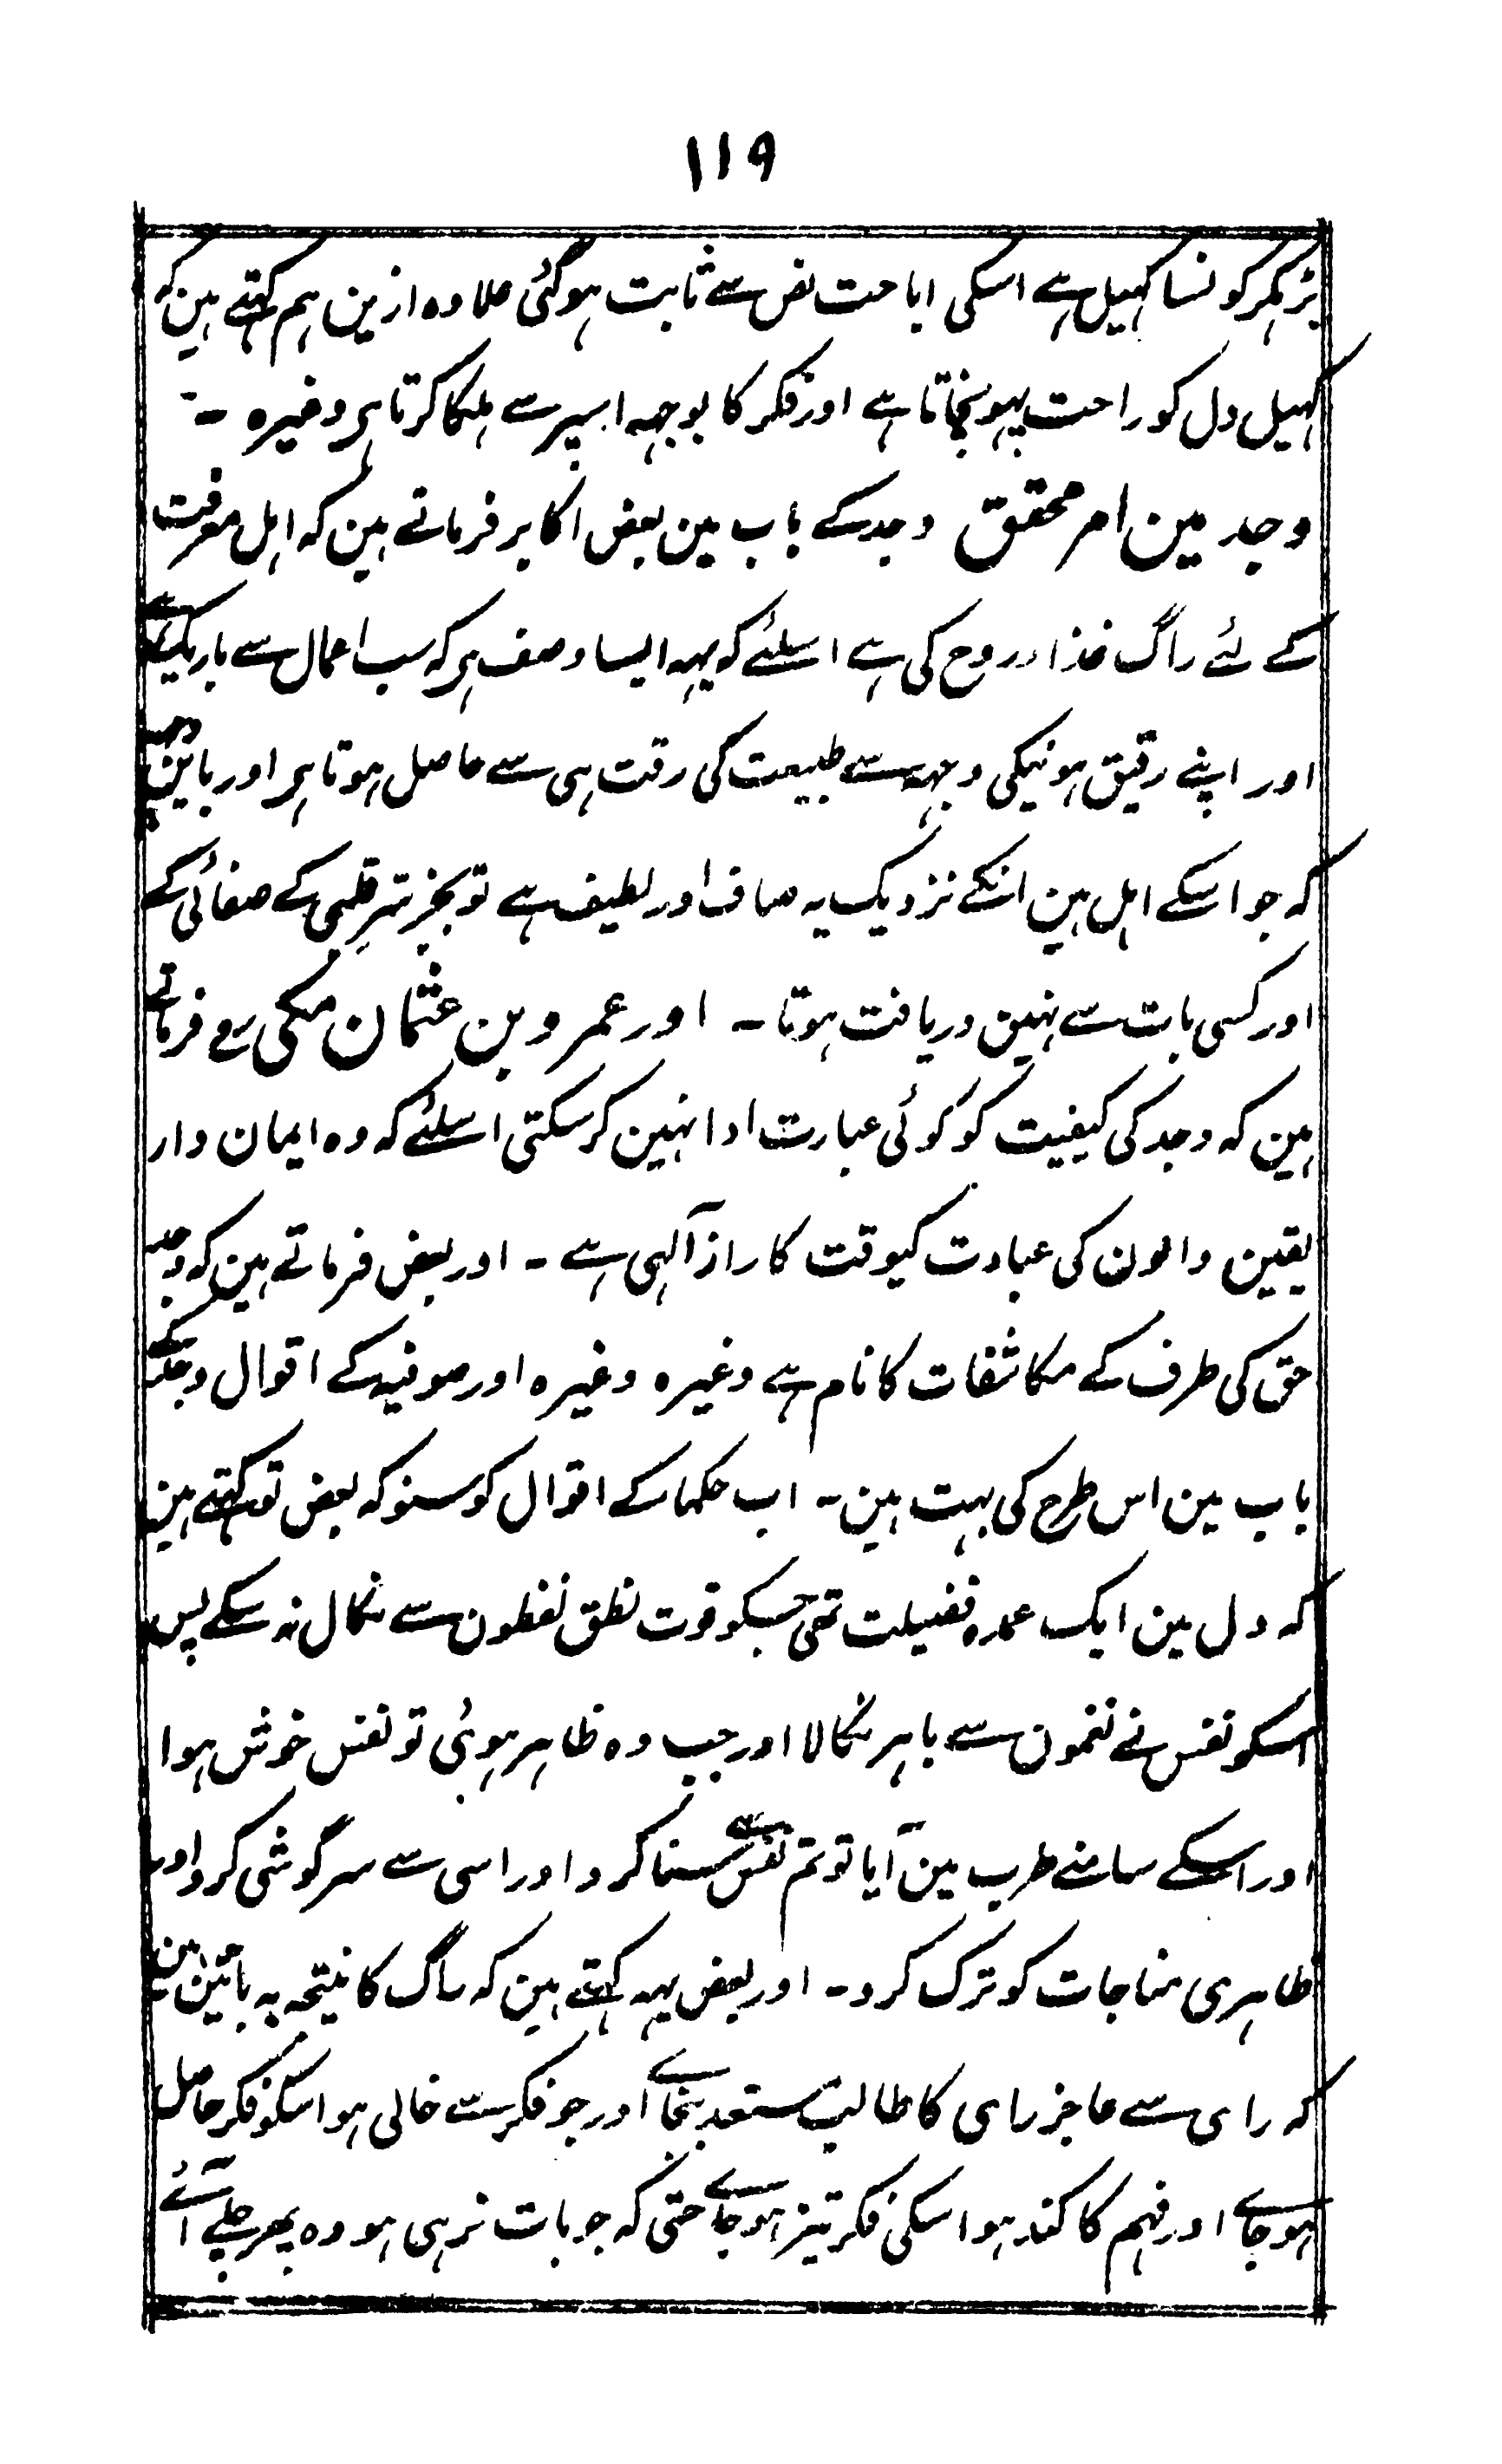 ۱۱۹
بڑہکر کونسا کہیل ہے اسکی اباحت نص سے ثابت ہوگئی علاوہ ازین ہم کہتے ہین کہ
کہیل دل کو راحت پہونچاتا ہے اور فکر کا بوجہہ اسپر سے ہلکا کرتا ہر وغیرہ -
وجد مین امر محقق وجد کے باب مین بعض اکابر فرماتے ہین کہ اہل معرفت
کے لئے راگ غذا روح کی ہے اسلئے کہ یہہ ایسا وصف ہر کہ سب اعمال سے باریک ہے
اور اپنے رقیق ہونیکی وجہہ سے طبیعت کی رقت ہی سے حاصل ہوتا ہر اور باین وجہہ
کہ جو اسکے اہل ہین انکے نزدیک یہ صاف اور لطیف ہے تو بجز سِّر قلبی کے صفائی کے
اور کسی بات سے نہین دریافت ہوتا - اور عمرو بن عثمان مکی رح فرماتے
ہین کہ وجد کی کیفیت کو کوئی عبارت ادا نہین کرسکتی اسلئے کہ وہ ایمان دار
یقین والون کی عبادت کیوقت کا راز آلہی ہے - اور بعض فرماتے ہین کہ وجد
حق کی طرف کے مکاشفات کا نام ہے وغیرہ وغیرہ اور صوفیہ کے اقوال وجد کے
باب مین اس طرح کی بہت ہین - اب حکما کے اقوال کو سنو کہ بعض تو کہتے ہین
کہ دل مین ایک عمدہ فضیلت تھی جسکو قوت نطق لفظون سے نکال نہ سکے پس
اسکو نفس نے نغمون سے باہر نکالا اور جب وہ ظاہر ہوئی تو نفس خوش ہوا
اور اسکے سامنے طرب مین آیا تو تم نفس سے سنا کرو اور اسی سے سرگوشی کرو اور
ظاہری مناجات کو ترک کرو - اور بعض یہہ کہتے ہین کہ راگ کا نتیجہ یہ باتین ہین
کہ رای سے عاجز رای کا طالب مستعد بنجاے اور جو فکر سے خالی ہو اسکو فکر حاصل
ہوجاے اور فہم کا کند ہو اسکی فکر تیز ہوجاے حتی کہ جو بات نرہی ہو وہ پھر چلے آئے